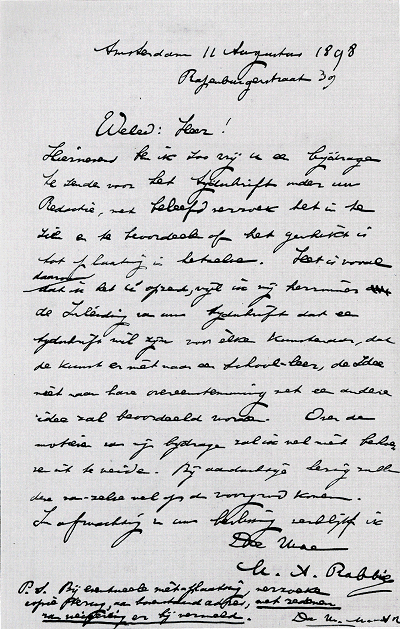 Amsterdam 11 Augustus 1898
Rapenburgerstraat 39
WelEd: Heer!
Hiernevens ben ik zoo vrij u een bijdrage
te zenden voor het tijdschrift onder uw
Redactie, met beleefd verzoek het in te
zien en te beoordeelen of het geschikt is
tot plaatsing in hetzelve. Het is vooral
daarom
dat ik het u opzend, wijl ik mij herinner
de Inleiding van uw tijdschrift dat een
tijdschrift wil zijn voor elke Kunstenaar, dat
de kunst er niet naar een school-leer, de Idee
niet naar hare overeenstemming met een andere
idee zal beoordeeld worden. Over de
motieven van mijn bijdrage zal ik wel niet behoeven
uit te weiden. Bij aandachtige lezing zullen
deze van-zelve wel op de voorgrond komen.
In afwachting van uw beslissing verblijf ik
Uw
M. A. Rabbie
P.S. Bij eventueele niet-plaatsing, verzoeke
copie terug, aan bovenstaand adres, met redenen
van weigering er bij vermeld.